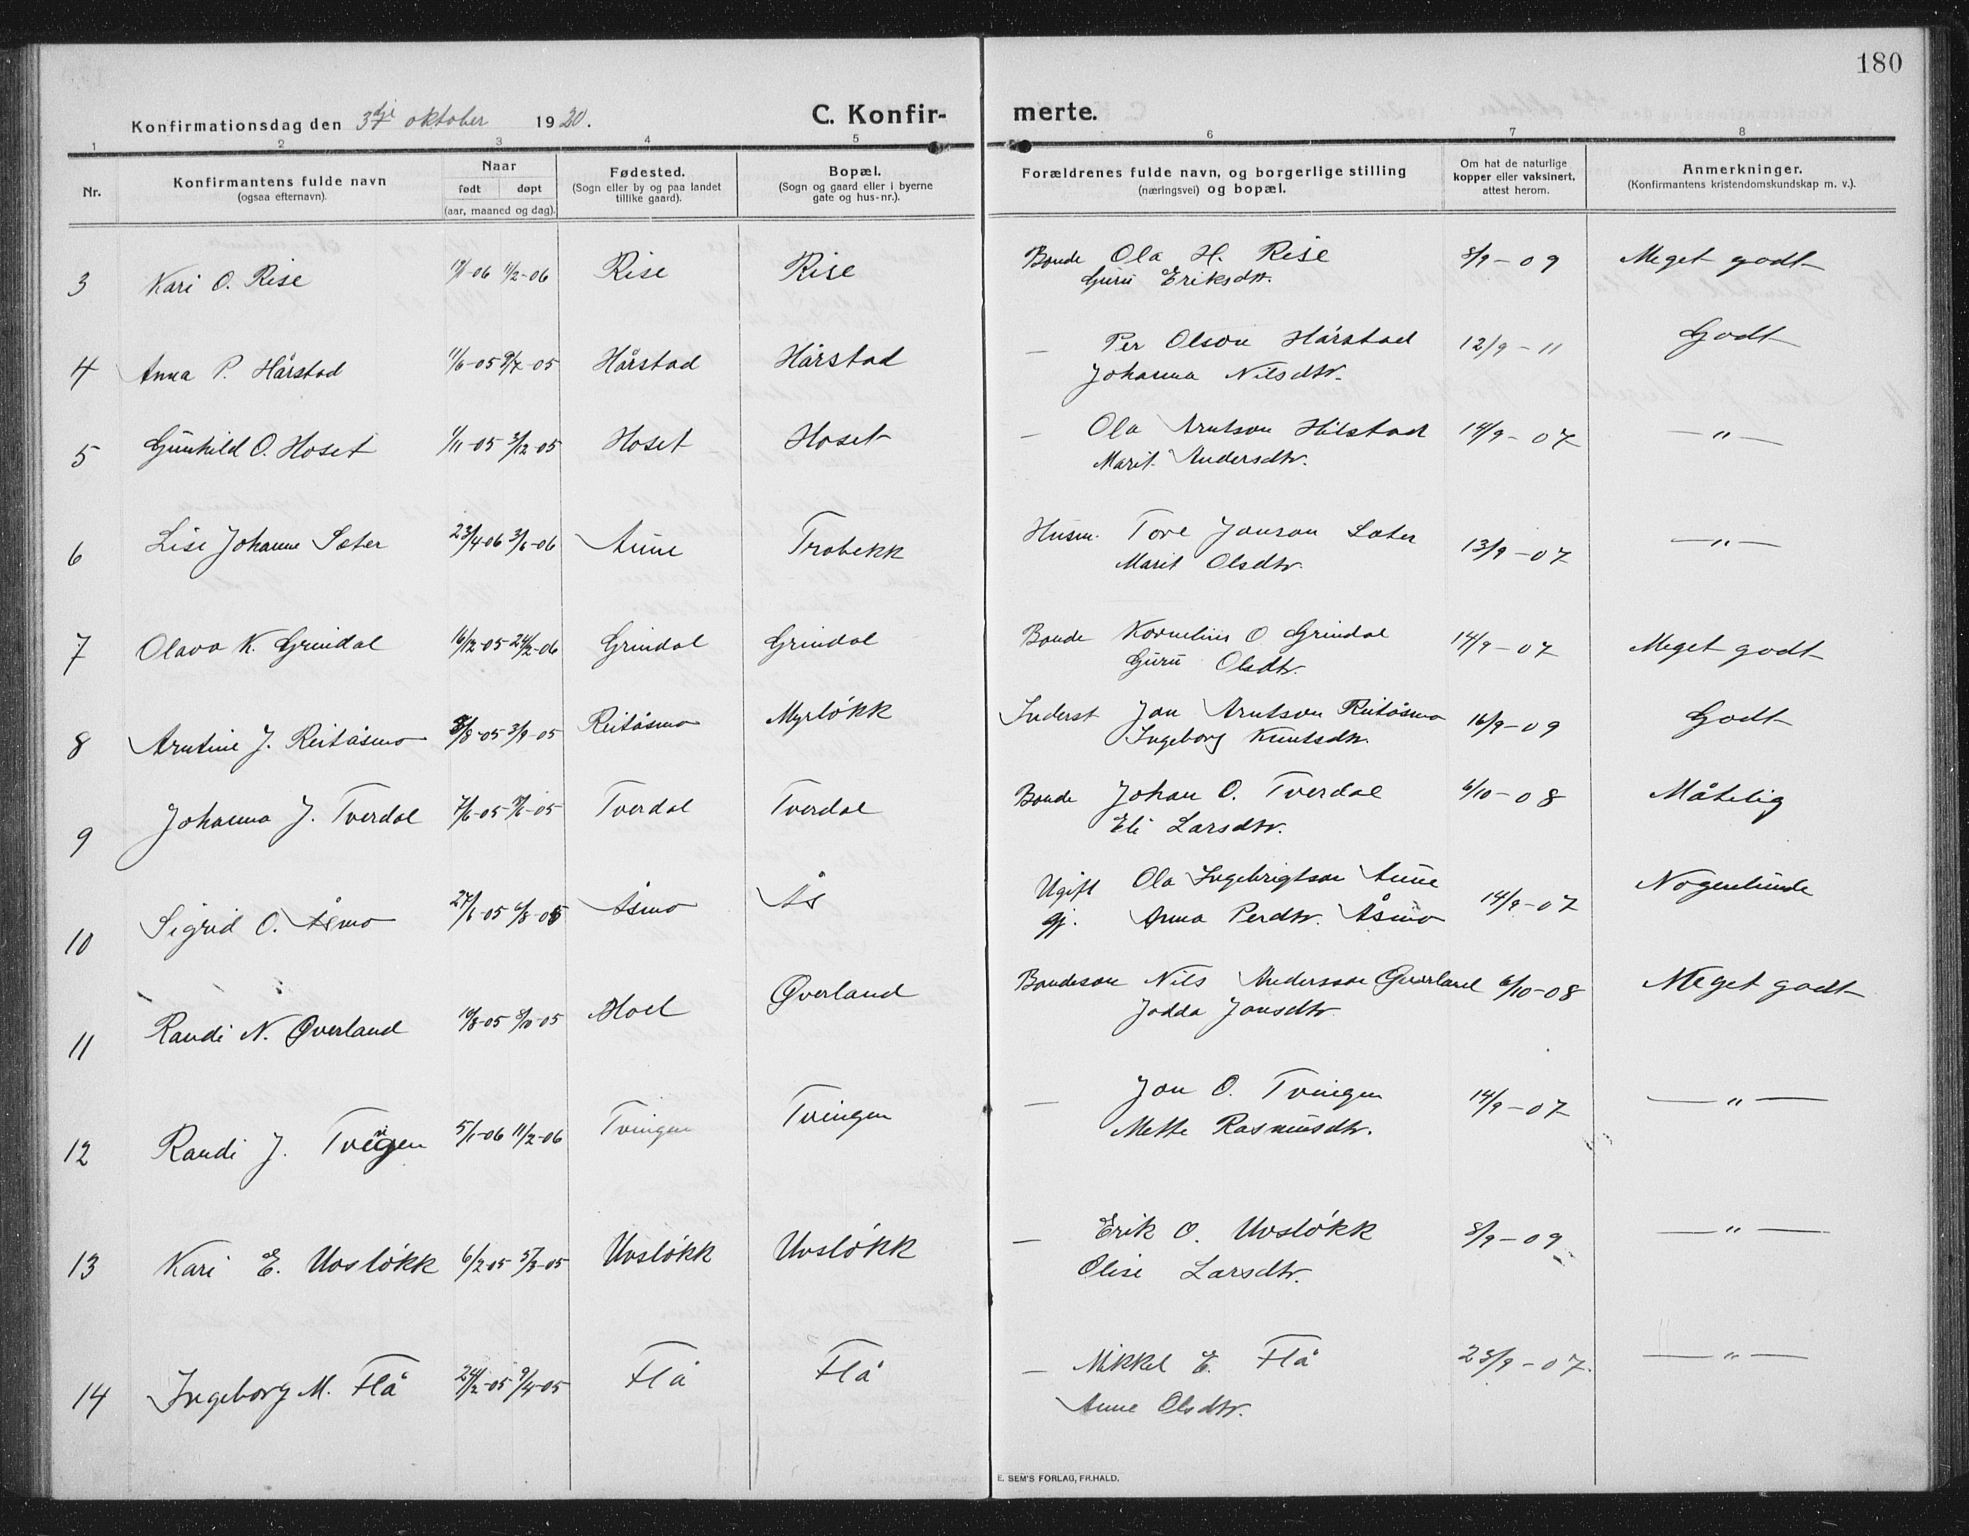 180
Konfirmationsdag den 3dje oktober 1920.
C. Konfir- merte.
1 2 3 4 5 6 7 8
Nr.
Konfirmantens fulde navn
(ogsaa efternavn).
Naar
født døpt
(aar, maaned og dag).
Fødested.
(Sogn eller by og paa landet
tillike gaard).
Bopæl.
(Sogn og gaard eller i byerne
gate og hus-nr.).
Forældrenes fulde navn, og borgerlige stilling
(næringsvei) og bopæl.
Om hat de naturlige
kopper eller vaksinert,
attest herom.
Anmerkninger.
(Konfirmantens kristendomskundskap m. v.).
3 Kari O. Rise 11/2-06 Rise Rise Bonde Ola H. Rise 8/9-09 Meget godt
Guru Eriksdtr.
4 Anna P. Hårstad 11/6-05 9/7-05 Hårstad Hårstad — Per Olson Hårstad 12/9-11 Godt
Johanna Nilsdtr.
5 Gunhild O. Hoset 1/11-05 3/12-05 Hoset Hoset — Ola Arntson Hilstad 14/9-07 —"—
Marit Andersdtr.
6 Lise Johanne Sæter 23/4-06 3/6-06 Aune Trobekk Husm. Tore Jonson Sæter 13/9-07 —"—
Marit Olsdtr.
7 Olava K. Grindal 16/12-05 24/2-06 Grindal Grindal Bonde Kornelius O Grindal 14/9-07 Meget godt
Guru Olsdtr.
8 Arntine J. Reitåsmo 8/8-05 3/9-05 Reitåsmo Myrløkk Inderst Jon Arntson Reitåsmo 16/9-09 Godt
Ingeborg Knutsdtr.
9 Johanna J. Tverdal 7/6-05 Tverdal Tverdal Bonde Johan O. Tverdal 6/10-08 Måtelig
Eli Larsdtr.
10 Sigrid O. Åsmo 27/6-05 6/8-05 Åsmo Ås Ugift Ola Ingebrigtson Aune 14/9-07 Nogenlunde
gj. Anna Perdtr. Åsmo
11 Randi N. Øverland 8/10-05 Hoel Øverland Bondeson Nils Anderson Øverland 6/10-08 Meget godt
Jodda Jonsdtr
12 Randi J. Tvingen 5/1-06 11/2-06 Tvingen Tvingen — Jon O. Tvingen 14/9-07 —"—
Mette Rasmusdtr.
13 Kari E. Uvsløkk 6/2-05 5/3-05 Uvsløkk Uvsløkk — Erik O. Uvsløkk 8/9-09 —"—
Olise Larsdtr.
14 Ingeborg M. Flå 24/2-05 9/4-05 Flå Flå — Mikkel E. Flå 23/9-07. —"—
Anne Olsdtr.
E. SEM'S FORLAG, FR.HALD.